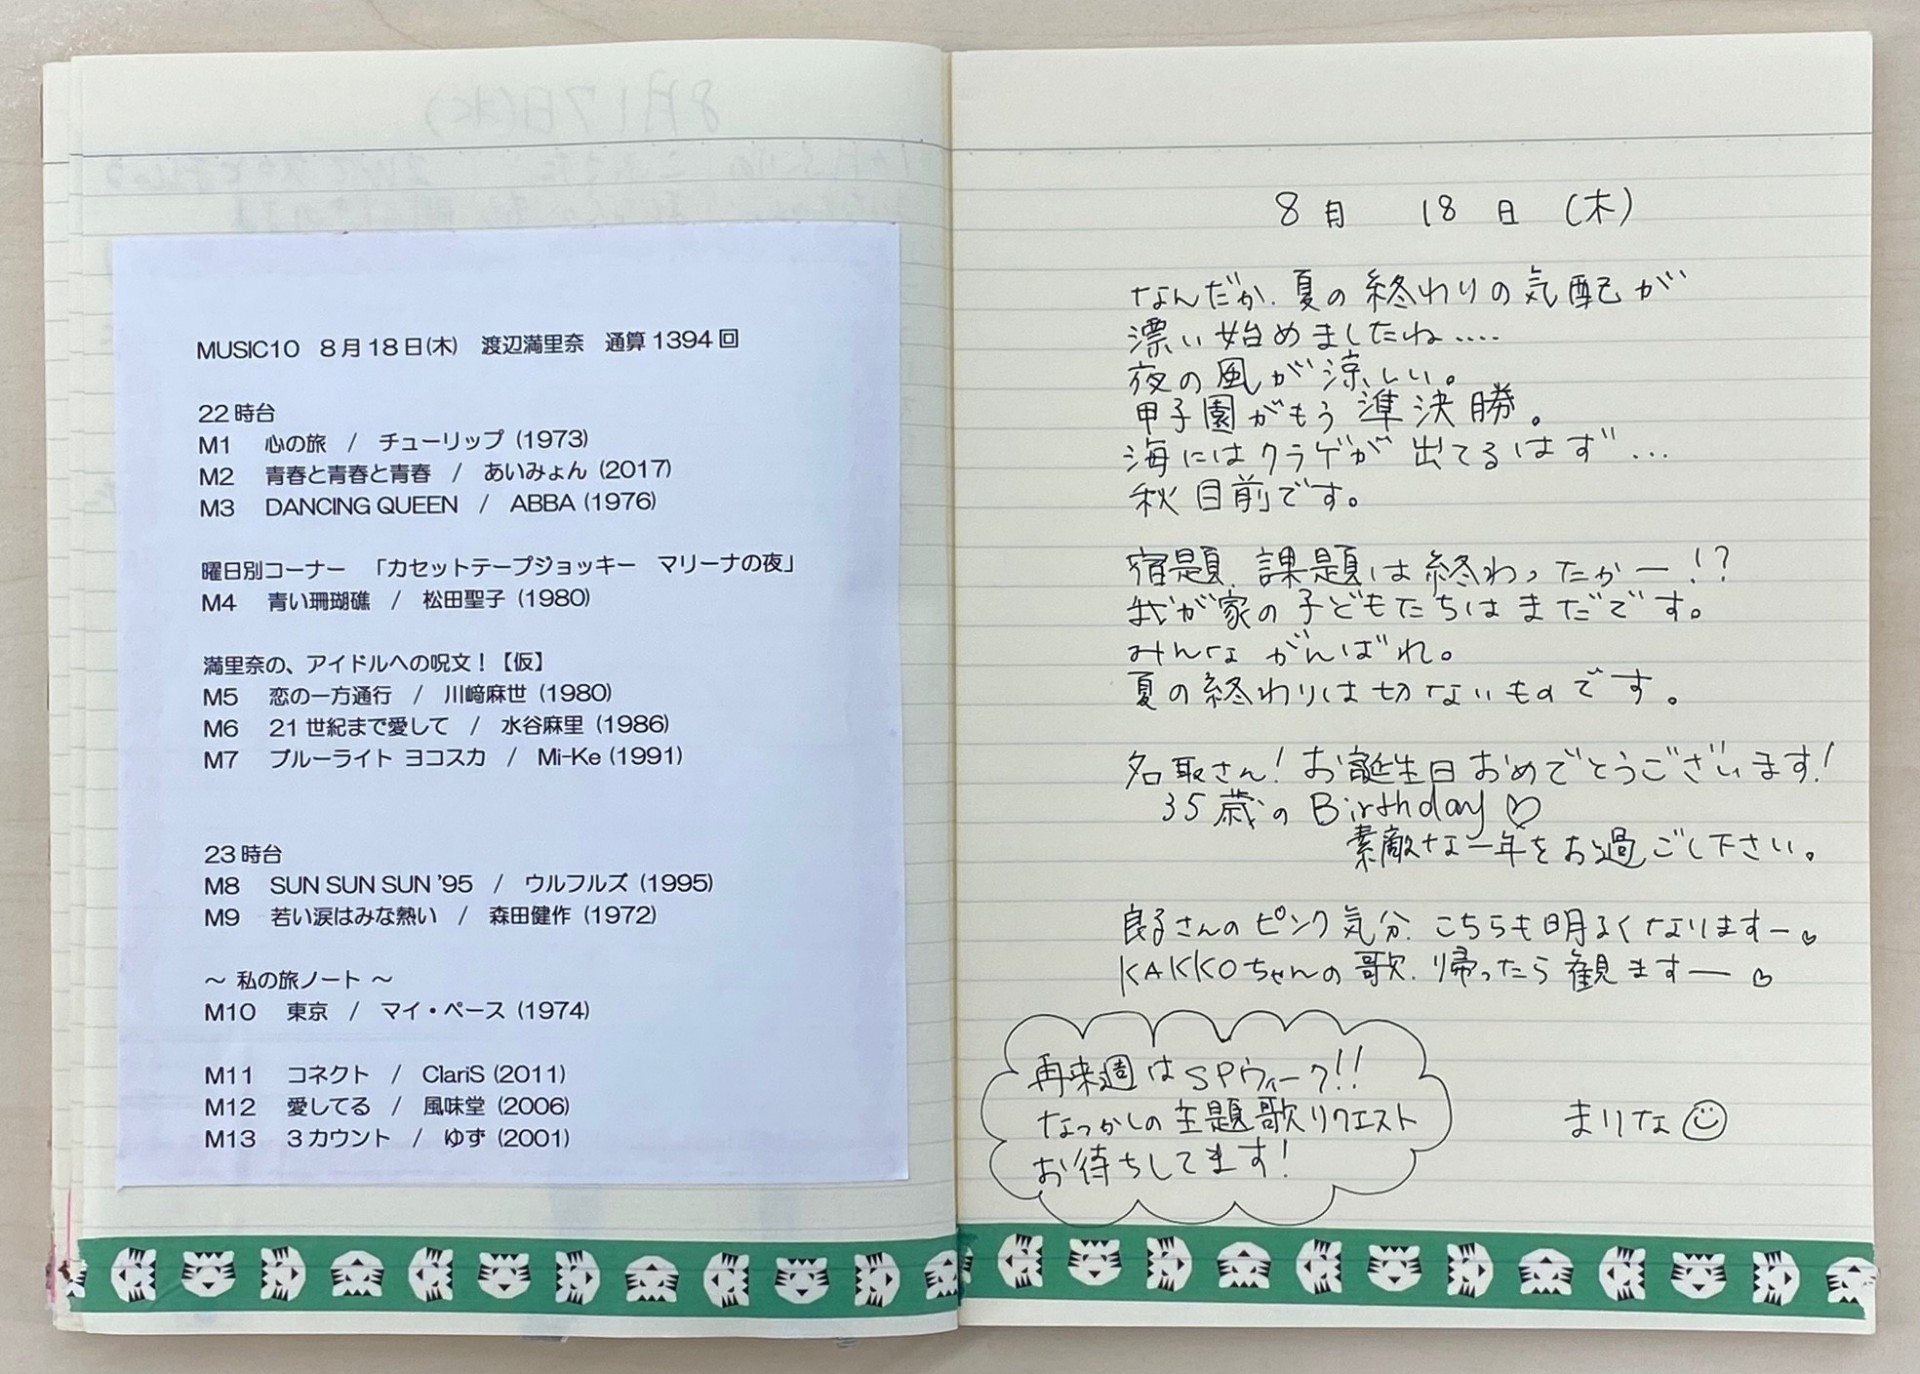 MUSIC10 8月18日(木) 渡辺満里奈 通算1394回
22時台
M1 心の旅 / チューリップ (1973)
M2 青春と青春と青春 / あいみょん (2017)
M3 DANCING QUEEN / ABBA (1976)
曜日別コーナー 「カセットテープジョッキー マリーナの夜」
M4 青い珊瑚礁 / 松田聖子 (1980)
満里奈の、アイドルへの呪文!【仮】
M5 恋の一方通行 / 川﨑麻世 (1980)
M6 21世紀まで愛して / 水谷麻里 (1986)
M7 ブルーライト ヨコスカ / Mi-Ke (1991)
23時台
M8 SUN SUN SUN '95 / ウルフルズ (1995)
M9 若い涙はみな熱い / 森田健作 (1972)
～ 私の旅ノート ～
M10 東京 / マイ・ペース (1974)
M11 コネクト / ClariS (2011)
M12 愛してる / 風味堂 (2006)
M13 3カウント / ゆず (2001)
8月 18日 (木)
なんだか、夏の終わりの気配が
漂い始めましたね....
夜の風が涼しい。
甲子園がもう準決勝。
海にはクラゲが出てるはず...
秋目前です。
宿題、課題は終わったかー!?
我が家の子どもたちはまだです。
みんながんばれ。
夏の終わりは切ないものです。
名取さん!お誕生日おめでとうございます!
35歳のBirthday♡
素敵な一年をお過ごし下さい。
良子さんのピンク気分、こちらも明るくなりますー♡
KAKKOちゃんの歌、帰ったら観ますー♡
再来週はSPウィーク!!
なつかしの主題歌リクエスト
お待ちしてます!
まりな☺
8月17日(水)